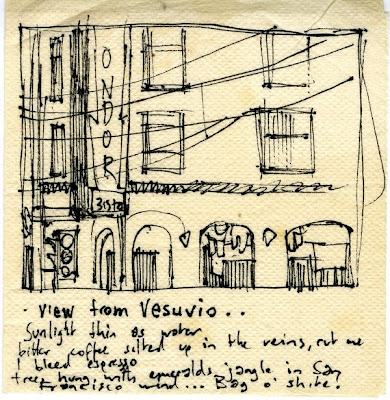 CONDOR
Bistro
. View from Vesuvio..
Sunlight thin as water
bitter coffee silted up in the veins, cut me
I bleed espresso
trees hung with emeralds jangle in San
Francisco wind... Bag o' shite!